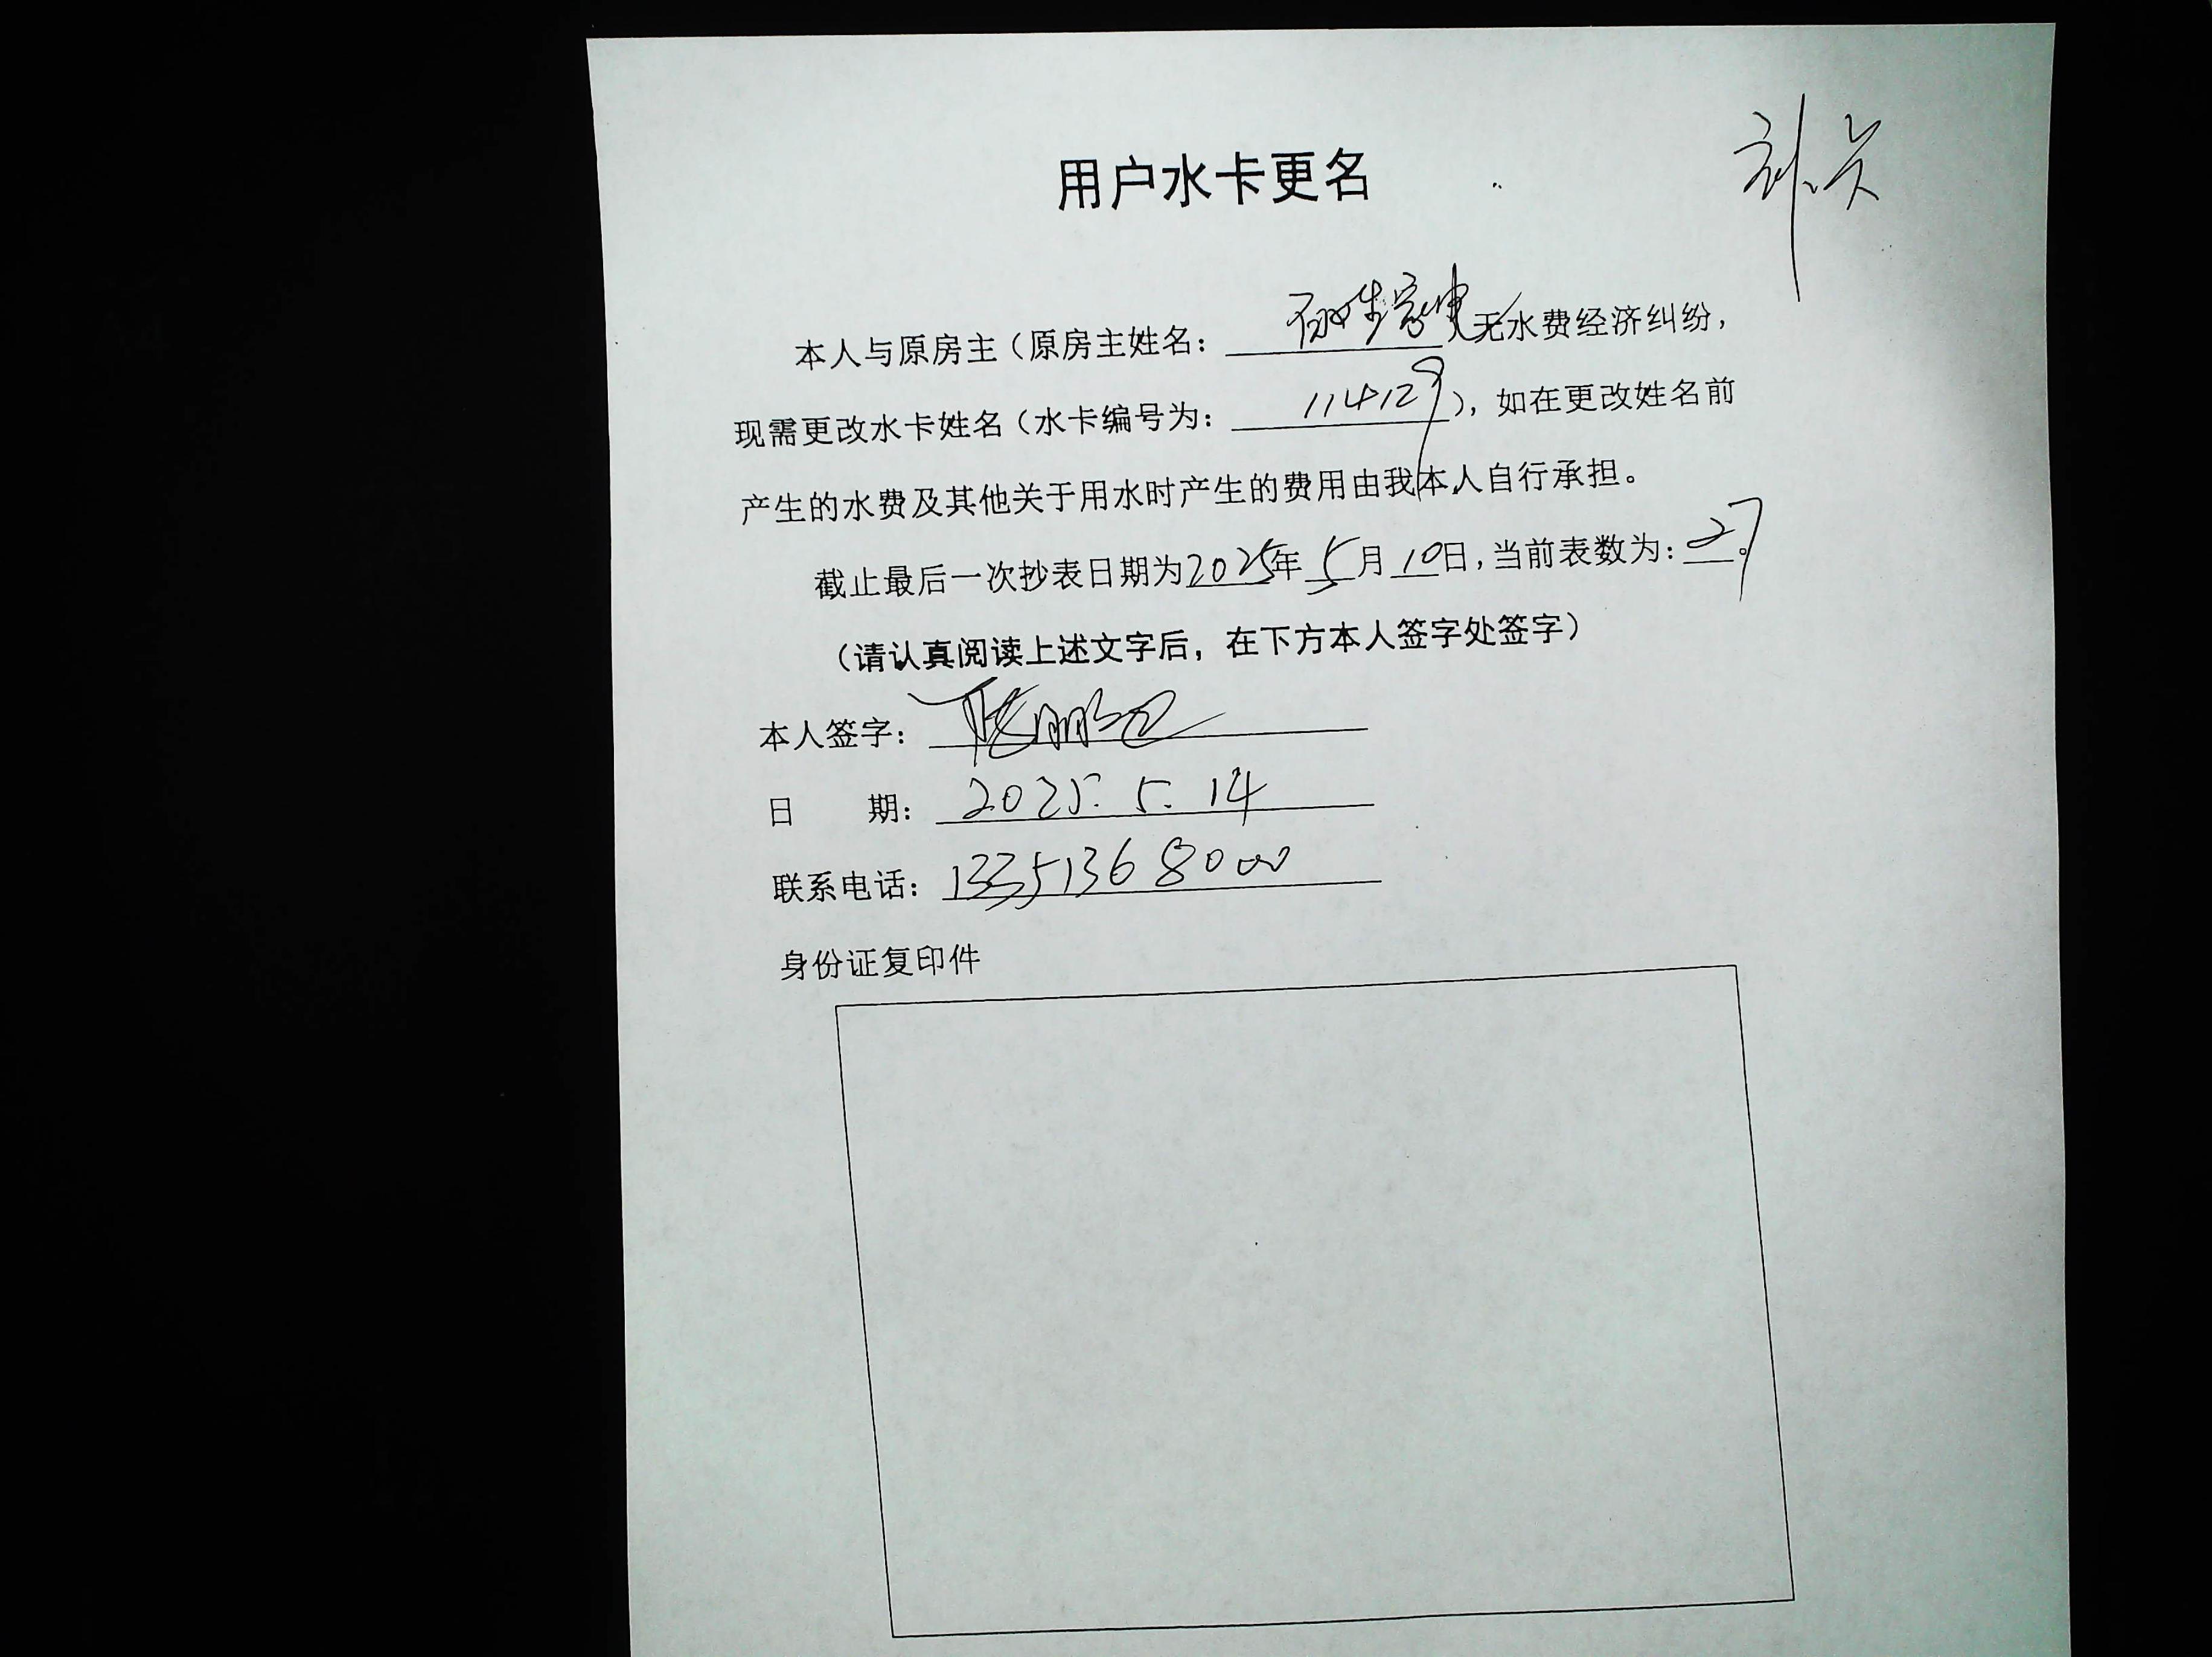 用户水卡更名
补卡
本人与原房主（原房主姓名：）无水费经济纠纷，
现需更改水卡姓名（水卡编号为：114129），如在更改姓名前
产生的水费及其他关于用水时产生的费用由我本人自行承担。
截止最后一次抄表日期为2025年5月10日，当前表数为：27。
（请认真阅读上述文字后，在下方本人签字处签字）
本人签字：
日 期：2025.5.14
联系电话：13351368000
身份证复印件